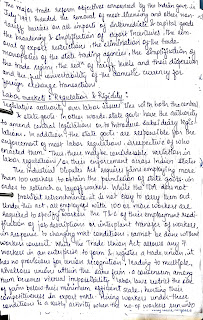 The major trade reform objective announced by the Indian govt in
July 1991 heralded the removal of most licensing and other non-
tariff barriers on all imports of intermediate & capital goods
the broadening & simplification of export incentives, the remo-
val of export restrictions the elimination of the trade
monopolies of the state trading agencies, the simplification of
the trade regime, the of tariff levels and their dispersion
and the full convertibility of the domestic currency for
foreign exchange transactions.
Labor Markets & Regulation & Rigidity:
Legislative authority over labour issues lies with both the central
& state govts. In other words state govts have the authority
to amend central legislations or to introduce subsidiary legis-
lations. In addition the state govts are responsible for the
enforcement of most labor regulations irrespective of who
enacted them. Thus there may be considerable variation in
labor regulations or their enforcement across Indian States
The Industrial Disputes Act requires firms employing more
than 100 workers to obtain the permission of state govts in
order to retrench or layoff workers. Whilst the IDA does not
prohibit retrenchment, it is not easy to carry them out.
Under this act an employer with 100 or more workers are
required to specify workers the T&C of their employment modi-
fication of job descriptions or interplant transfer of workers
in response to changing market conditions cannot be done without
workers consent. While the Trade Union Act allows any 7
workers in an enterprise to form & register a trade union, it
has no provisions for union recognition, leading to multiple &
rivalrous unions within the same firm. A consensus among
them becomes almost impossibility. Labor laws restrict the size
of firms below their minimum efficient scale, hurting their
competitiveness in export mkts. Hiring workers under these
conditions is a costly activity when the no of workers run into